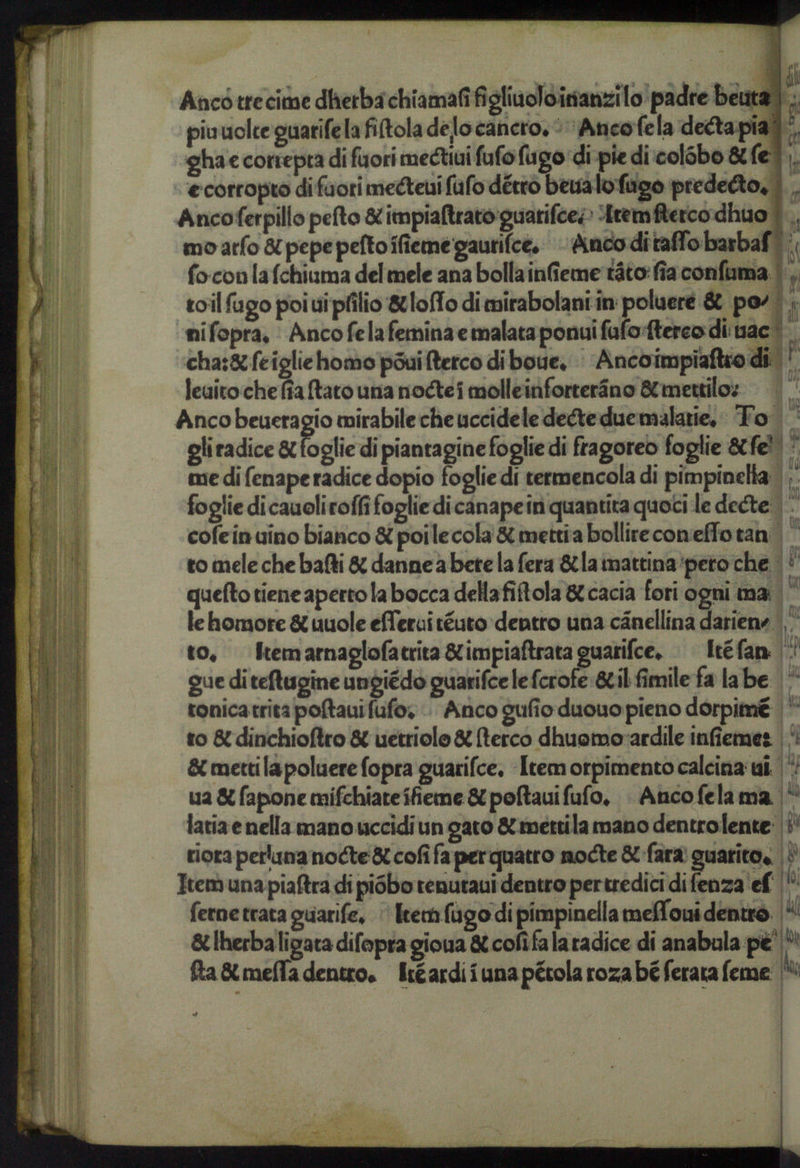 Anco tre cime dherba chiamasi figliuolo inanzi lo padre beuta
piu uolte guarise la fistola de lo cancro. Anco se la decta pia
gha e correpta di fuori mectiui suso sugo di pie di colōbo & se
e corropto di fuori mecteui suso dētro beua lo sugo predecto.
Anco serpillo pesto & impiastrato guarisce: Item sterco dhuo
mo arso & pepe pesto īsieme gaurisce. Anco di tasso barbas
so con la schiuma del mele ana bolla insieme tāto sia consuma
to il sugo poi ui psilio & losso di mirabolani in poluere & po/
ni sopra. Anco se la femina e malata ponui suso sterco di uac
cha: & se iglie homo pōui sterco di boue. Anco impiastro di
leuito che sia stato una nocte ī molle in forte rāno & mettilo:
Anco beueragio mirabile che uccide le decte due malatie. To
gli radice & foglie di piantagine foglie di fragoreo foglie & se
me di senape radice dopio foglie di termencola di pimpinella
foglie di cauoli rossi foglie di canape in quantita quoci le decte
cose in uino bianco & poi le cola & metti a bollire con esso tan
to mele che basti & danne a bere la sera & la mattina pero che
questo tiene aperto la bocca della fistola & cacia fori ogni ma
le homore & uuole esserui tēuto dentro una cānellina darien/
to. Item arnaglosa trita & impiastrata guarisce. Itē san
gue di testugine ungiēdo guarisce le scrofe & il simile fa la be
tonica trita postaui suso. Anco gusio duouo pieno dorpimē
to & dinchiostro & uetriolo & sterco dhuomo ardile insieme:
& metti la poluere sopra guarisce. Item orpimento calcina ui
ua & sapone mischiate īsieme & postaui suso. Anco se la ma
latia e nella mano uccidi un gato & metti la mano dentro lente
riora per luna nocte & cosi fa per quatro nocte & sara guarito.
Item una piastra di piōbo tenutaui dentro per tredici di senza es
serne trata guarise. Item sugo di pimpinella messoui dentro
& lherba ligata di sopra gioua & cosi fa la radice di anabula pe
sta & messa dentro. Itē ardi ī una pētola roza bē serata seme